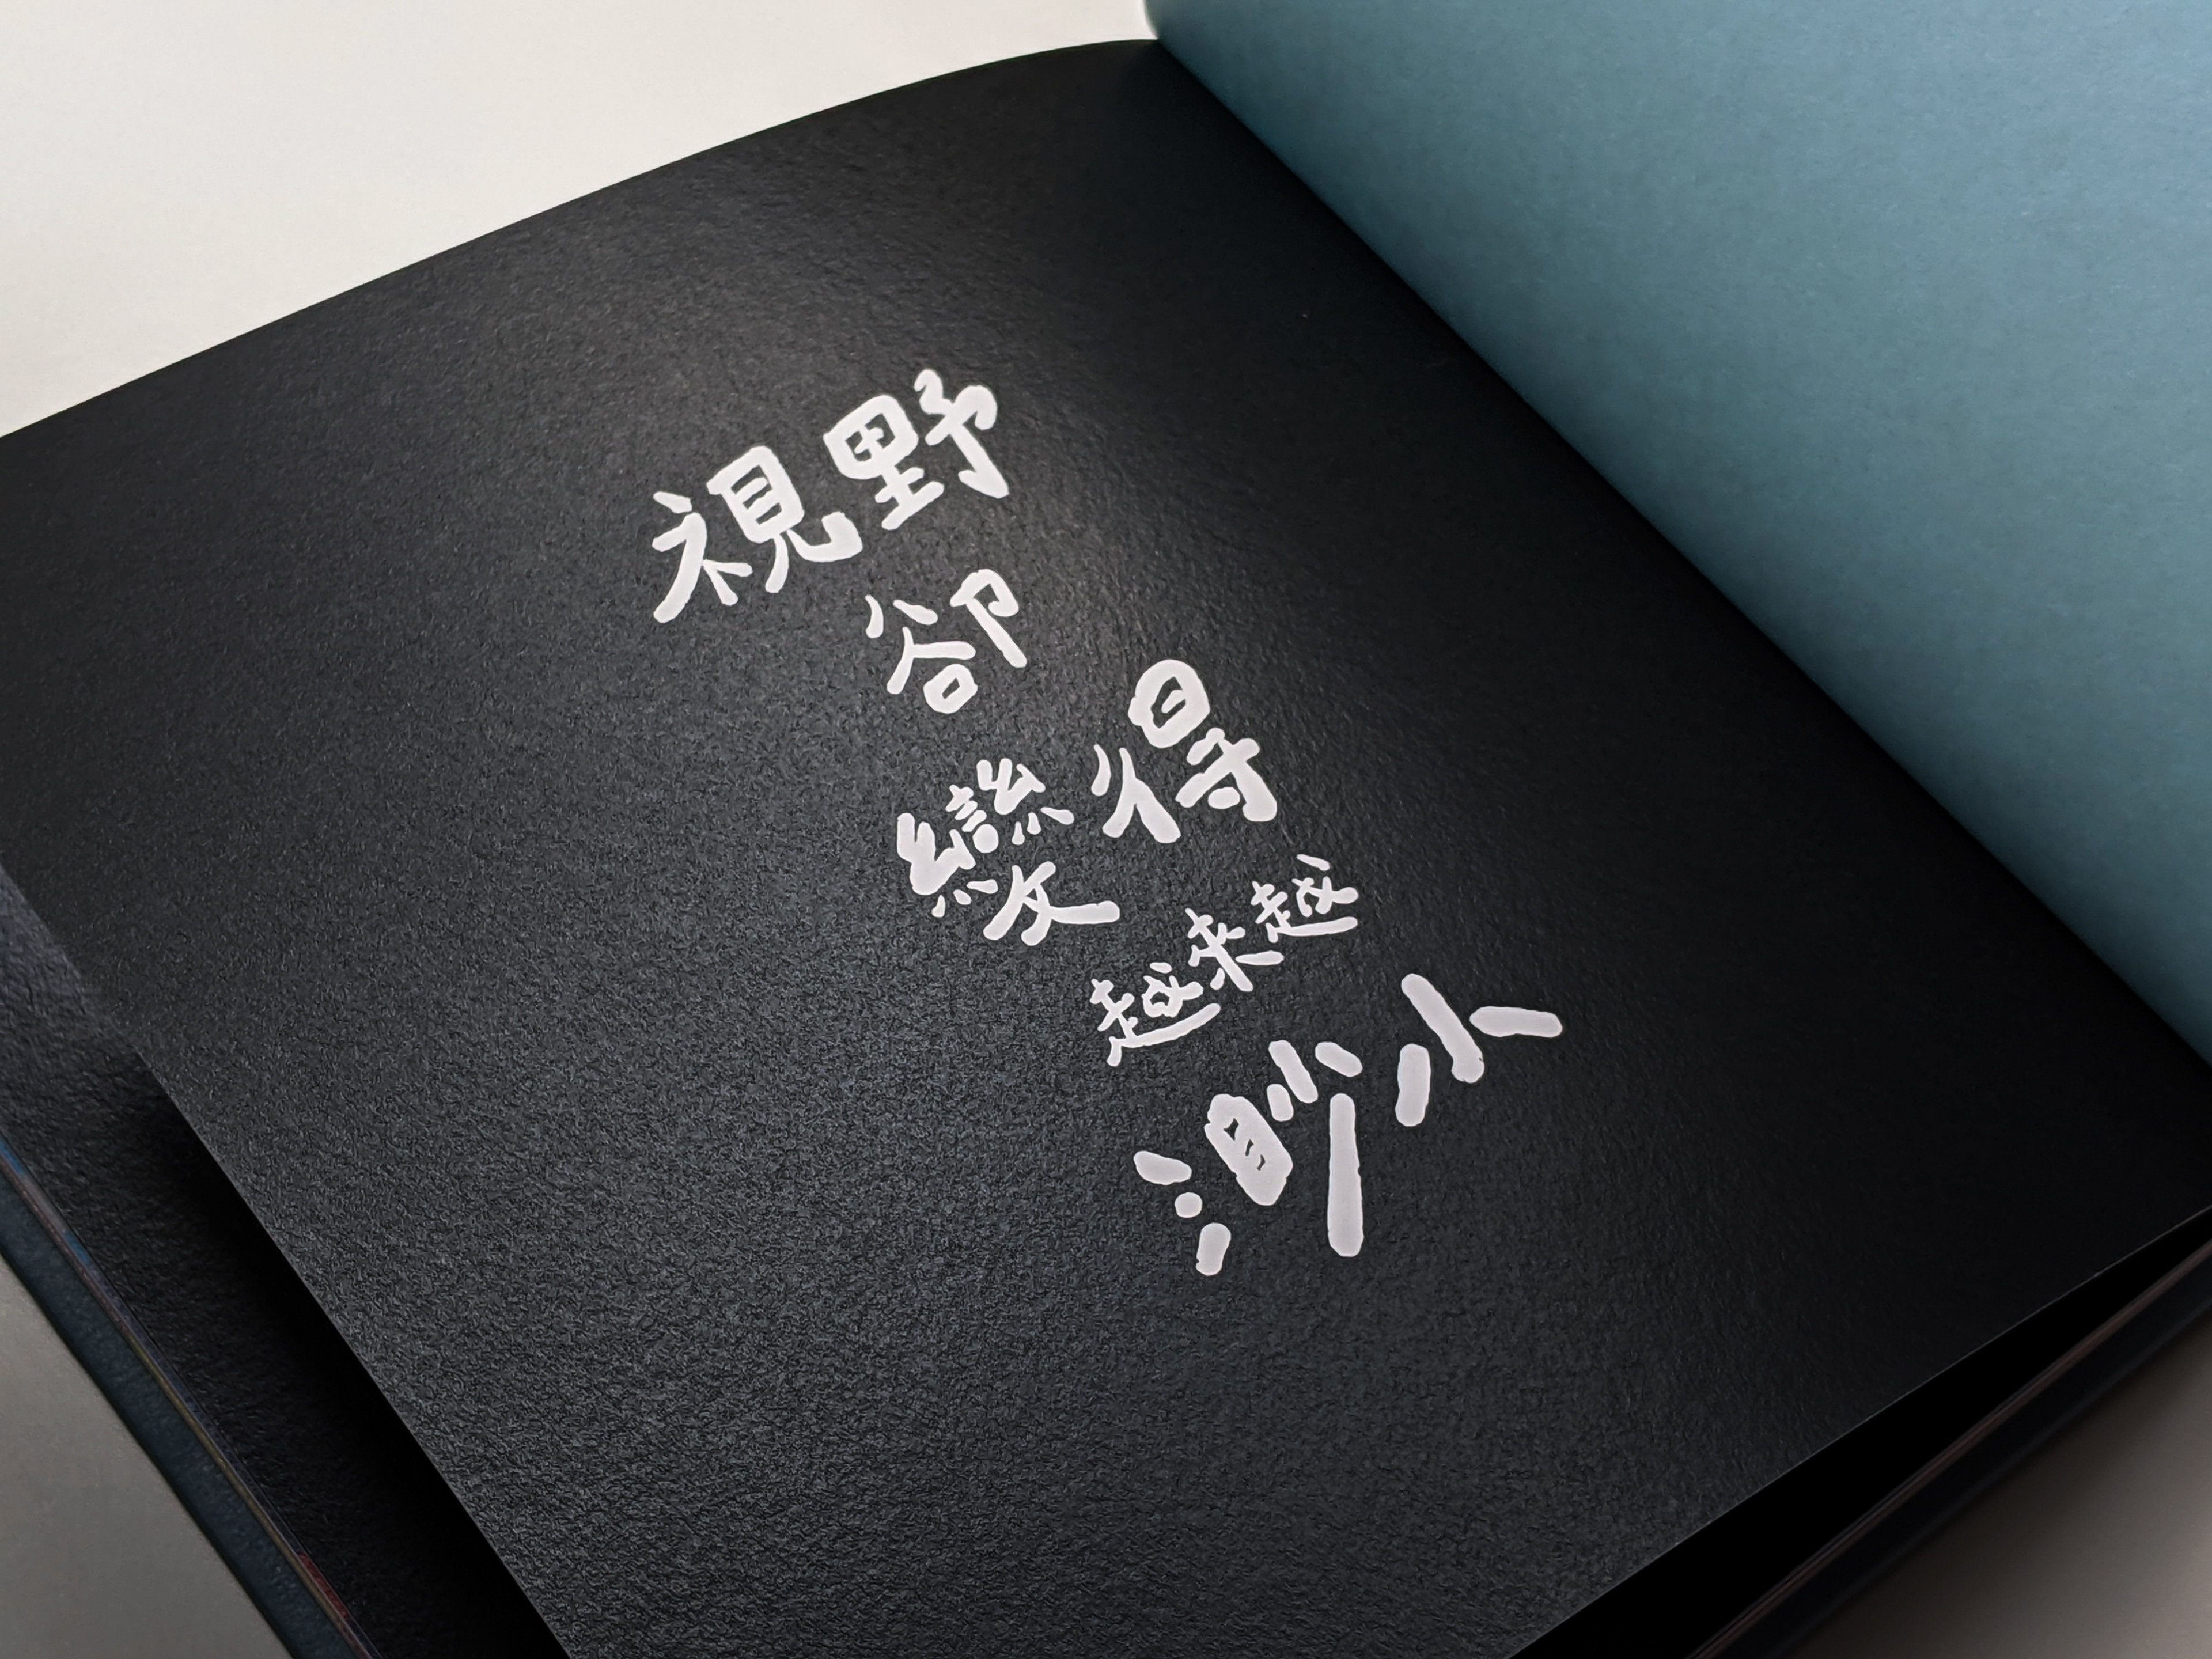 視野
卻
變得
越来越
渺小